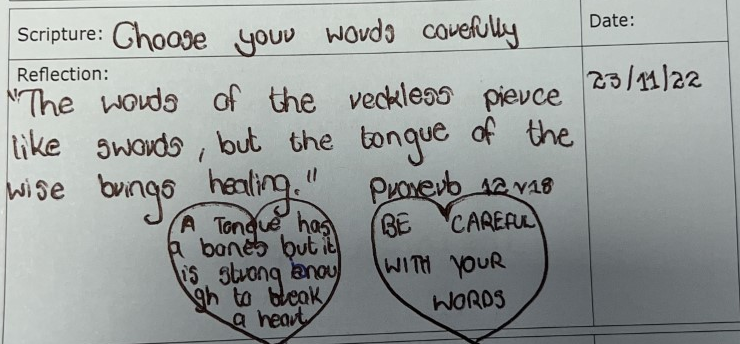 Scripture: Choose your words carefully
Date:
Reflection:
23/11/22
"The words of the reckless pierce
like swords, but the tongue of the
wise brings healing."
Proverb 12 v18
A Tongue has
a bones but it
is strong enou
gh to break
a heart
BE CAREFUL
WITH YOUR
WORDS